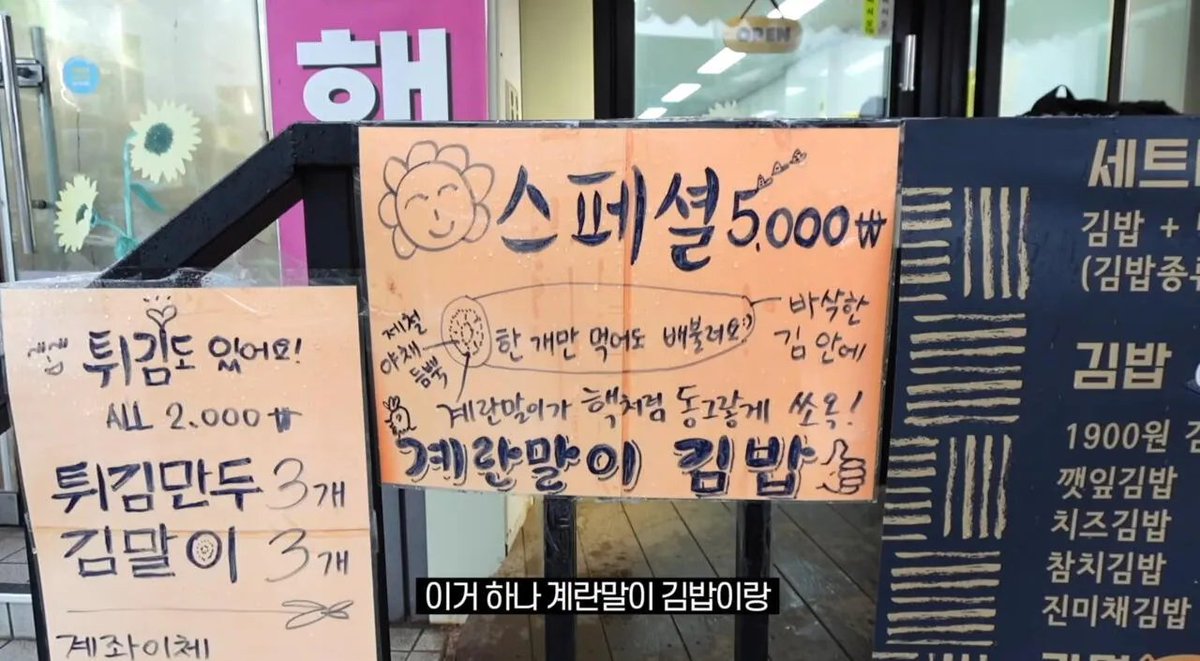 해
OPEN
스페셜 5,000₩
제철
야채
듬뿍
한 개만 먹어도 배불러요:)
바삭한
김 안에
계란말이가 핵처럼 동그랗게 쏘옥!
계란말이 김밥
튀김도 있어요!
ALL 2.000₩
튀김만두 3개
김말이 3개
계좌이체
세트
김밥 +
(김밥종류
김밥
1900원
깻잎김밥
치즈김밥
참치김밥
진미채김밥
이거 하나 계란말이 김밥이랑